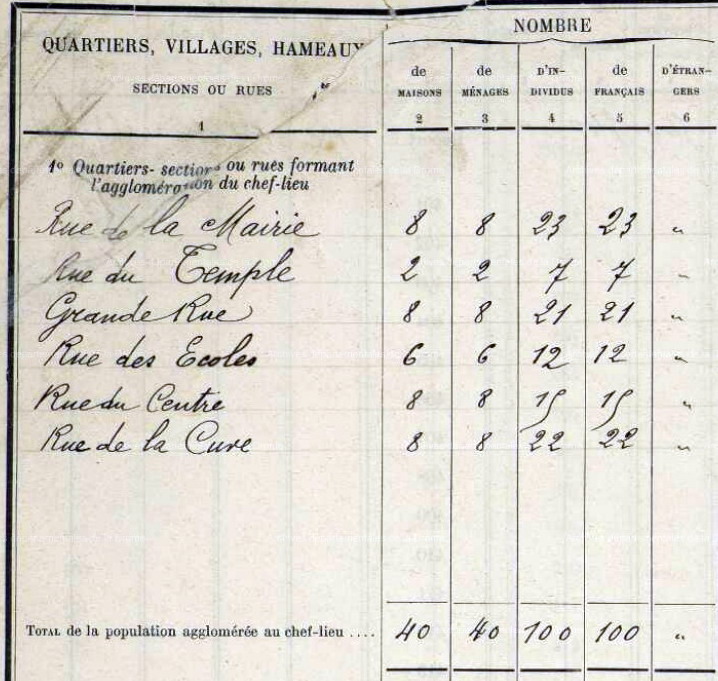 QUARTIERS, VILLAGES, HAMEAUX
SECTIONS OU RUES
1
NOMBRE
de MAISONS 2
de MÉNAGES 3
D'IN-DIVIDUS 4
de FRANÇAIS 5
D'ÉTRAN-GERS 6
1º Quartiers- sections ou rues formant
l'agglomération du chef-lieu
Rue de la Mairie 8 8 23 23 "
Rue du Temple 2 2 7 7 "
Grande Rue 8 8 21 21 "
Rue des Ecoles 6 6 12 12 "
Rue du Centre 8 8 15 15 "
Rue de la Cure 8 8 22 22 "
TOTAL de la population agglomérée au chef-lieu .... 40 40 100 100 "